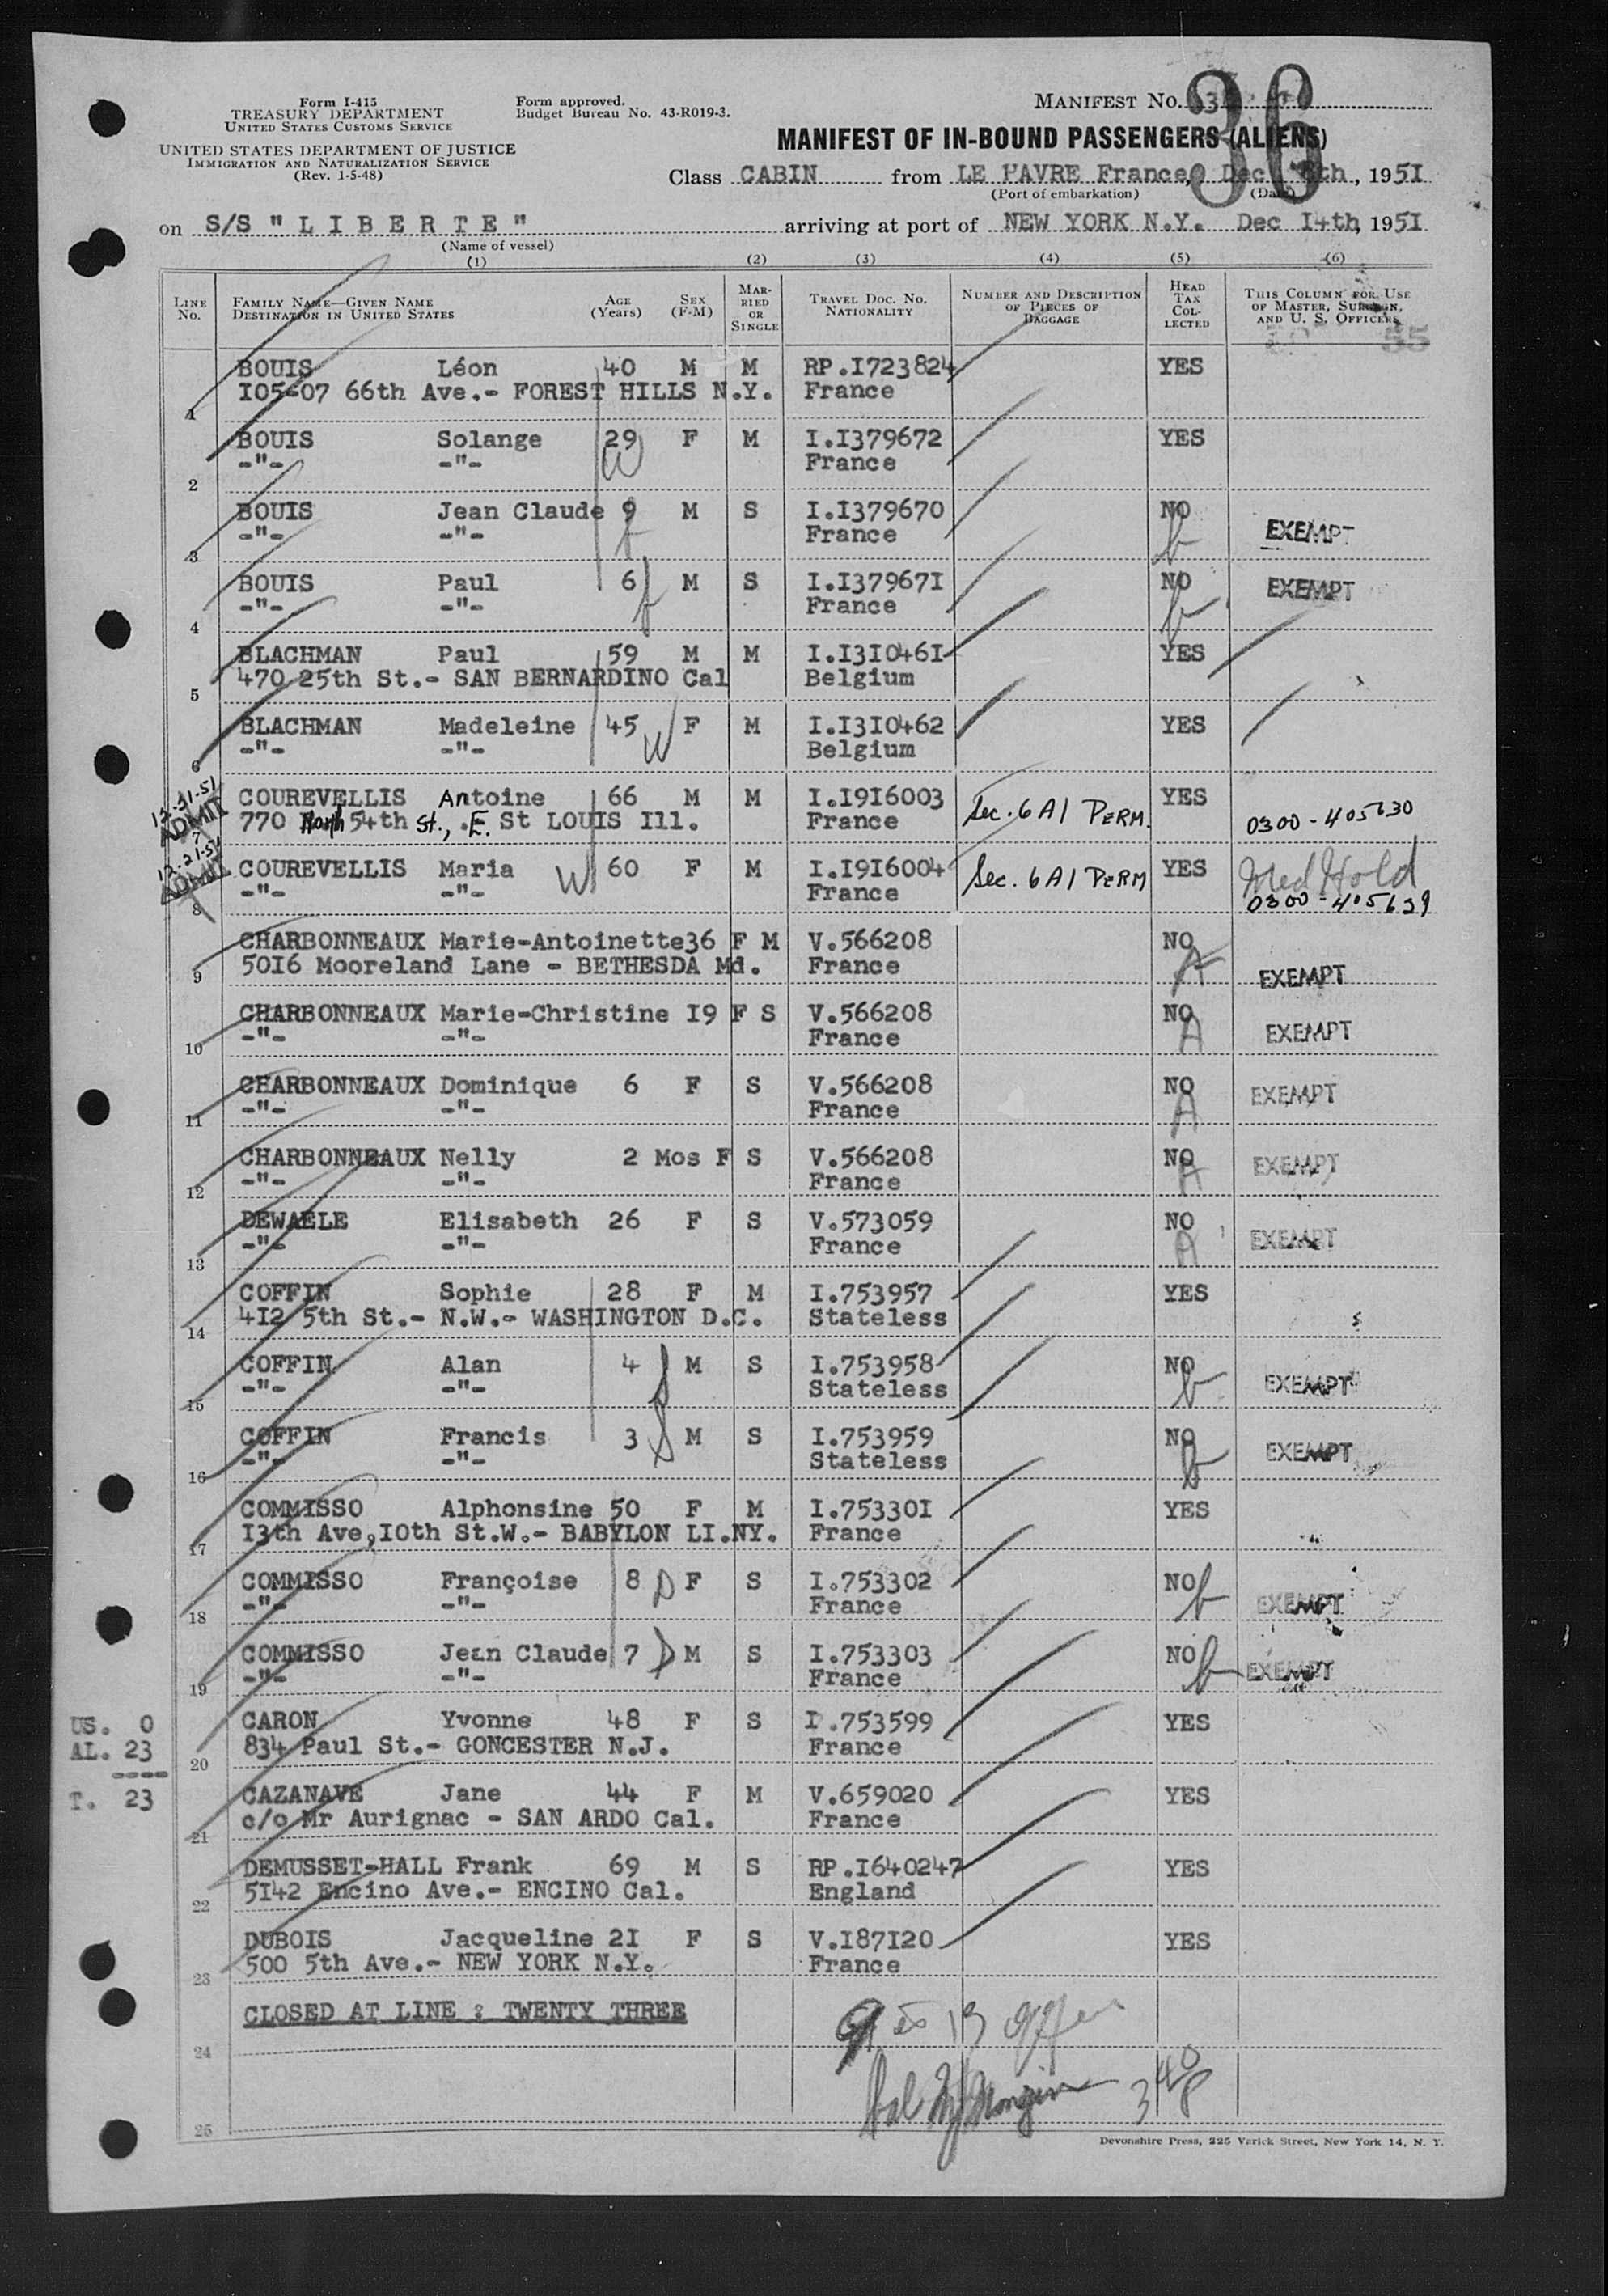 Form I-415
TREASURY DEPARTMENT
UNITED STATES CUSTOMS SERVICE
UNITED STATES DEPARTMENT OF JUSTICE
IMMIGRATION AND NATURALIZATION SERVICE
(Rev. 1-5-48)
Form approved.
Budget Bureau No. 43-R019-3.
MANIFEST NO.
36
MANIFEST OF IN-BOUND PASSENGERS (ALIENS)
Class CABIN from LE HAVRE France, Dec 8th, 1951
(Port of embarkation) (Date)
on S/S " L I B E R T E " arriving at port of NEW YORK N.Y. Dec I4th, 1951
(Name of vessel)
(1) (2) (3) (4) (5) (6)
LINE No. FAMILY NAME—GIVEN NAME DESTINATION IN UNITED STATES AGE (Years) SEX (F-M) MARRIED OR SINGLE TRAVEL DOC. NO. NATIONALITY NUMBER AND DESCRIPTION OF PIECES OF BAGGAGE HEAD TAX COLLECTED THIS COLUMN FOR USE OF MASTER, SURGEON, AND U. S. OFFICERS
55
BOUIS Léon 40 M M RP.I723824 YES
1 I05-07 66th Ave.- FOREST HILLS N.Y. France
BOUIS Solange 29 F M I.I379672 YES
W
2 -"- -"- France
BOUIS Jean Claude 9 M S I.I379670 NO EXEMPT
3 -"- -"- France
BOUIS Paul 6 M S I.I37967I NO EXEMPT
4 -"- -"- France
BLACHMAN Paul 59 M M I.I3I046I YES
5 470 25th St.- SAN BERNARDINO Cal Belgium
BLACHMAN Madeleine 45 W F M I.I3I0462 YES
6 -"- -"- Belgium
12-31-51 ADMIT
COUREVELLIS Antoine 66 M M I.I9I6003 Sec. 6 A1 PERM. YES
7 770 North 54th St., E. St LOUIS Ill. France 0300-405630
12-21-51 ADMIT
COUREVELLIS Maria W 60 F M I.I9I6004 Sec. 6 A1 PERM YES Med Hold
8 -"- -"- France 0300-405639
CHARBONNEAUX Marie-Antoinette36 F M V.566208 NO A EXEMPT
9 50I6 Mooreland Lane - BETHESDA Md. France
CHARBONNEAUX Marie-Christine I9 F S V.566208 NO A EXEMPT
10 -"- -"- France
CHARBONNEAUX Dominique 6 F S V.566208 NO A EXEMPT
11 -"- -"- France
CHARBONNEAUX Nelly 2 Mos F S V.566208 NO A EXEMPT
12 -"- -"- France
DEWAELE Elisabeth 26 F S V.573059 NO A EXEMPT
13 -"- -"- France
COFFIN Sophie 28 F M I.753957 YES
14 4I2 5th St.- N.W.- WASHINGTON D.C. Stateless
COFFIN Alan 4 M S I.753958 NO EXEMPT
15 -"- -"- Stateless
COFFIN Francis 3 M S I.753959 NO EXEMPT
16 -"- -"- Stateless
COMMISSO Alphonsine 50 F M I.75330I YES
17 I3th Ave,I0th St.W.- BABYLON LI.NY. France
COMMISSO Françoise 8 D F S I.753302 NO EXEMPT
18 -"- -"- France
COMMISSO Jean Claude 7 D M S I.753303 NO EXEMPT
19 -"- -"- France
US. 0
AL. 23
----
T. 23
CARON Yvonne 48 F S I.753599 YES
20 834 Paul St.- GONCESTER N.J. France
CAZANAVE Jane 44 F M V.659020 YES
21 c/o Mr Aurignac - SAN ARDO Cal. France
DEMUSSET-HALL Frank 69 M S RP.I640247 YES
22 5I42 Encino Ave.- ENCINO Cal. England
DUBOIS Jacqueline 2I F S V.I87I20 YES
23 500 5th Ave.- NEW YORK N.Y. France
CLOSED AT LINE : TWENTY THREE
24
25
Devonshire Press, 225 Varick Street, New York 14, N. Y.